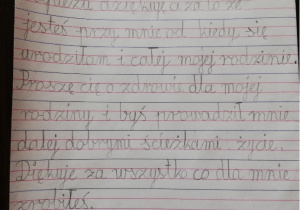 dziękuję a za to że
jesteś przy mnie od kiedy się
urodziłam i całej mojej rodzinie.
Proszę cię o zdrowie dla mojej
rodziny i byś prowadził mnie
dalej dobrymi ścieżkami życie.
Diękuje za wszystko co dla mnie
zrobiłeś.